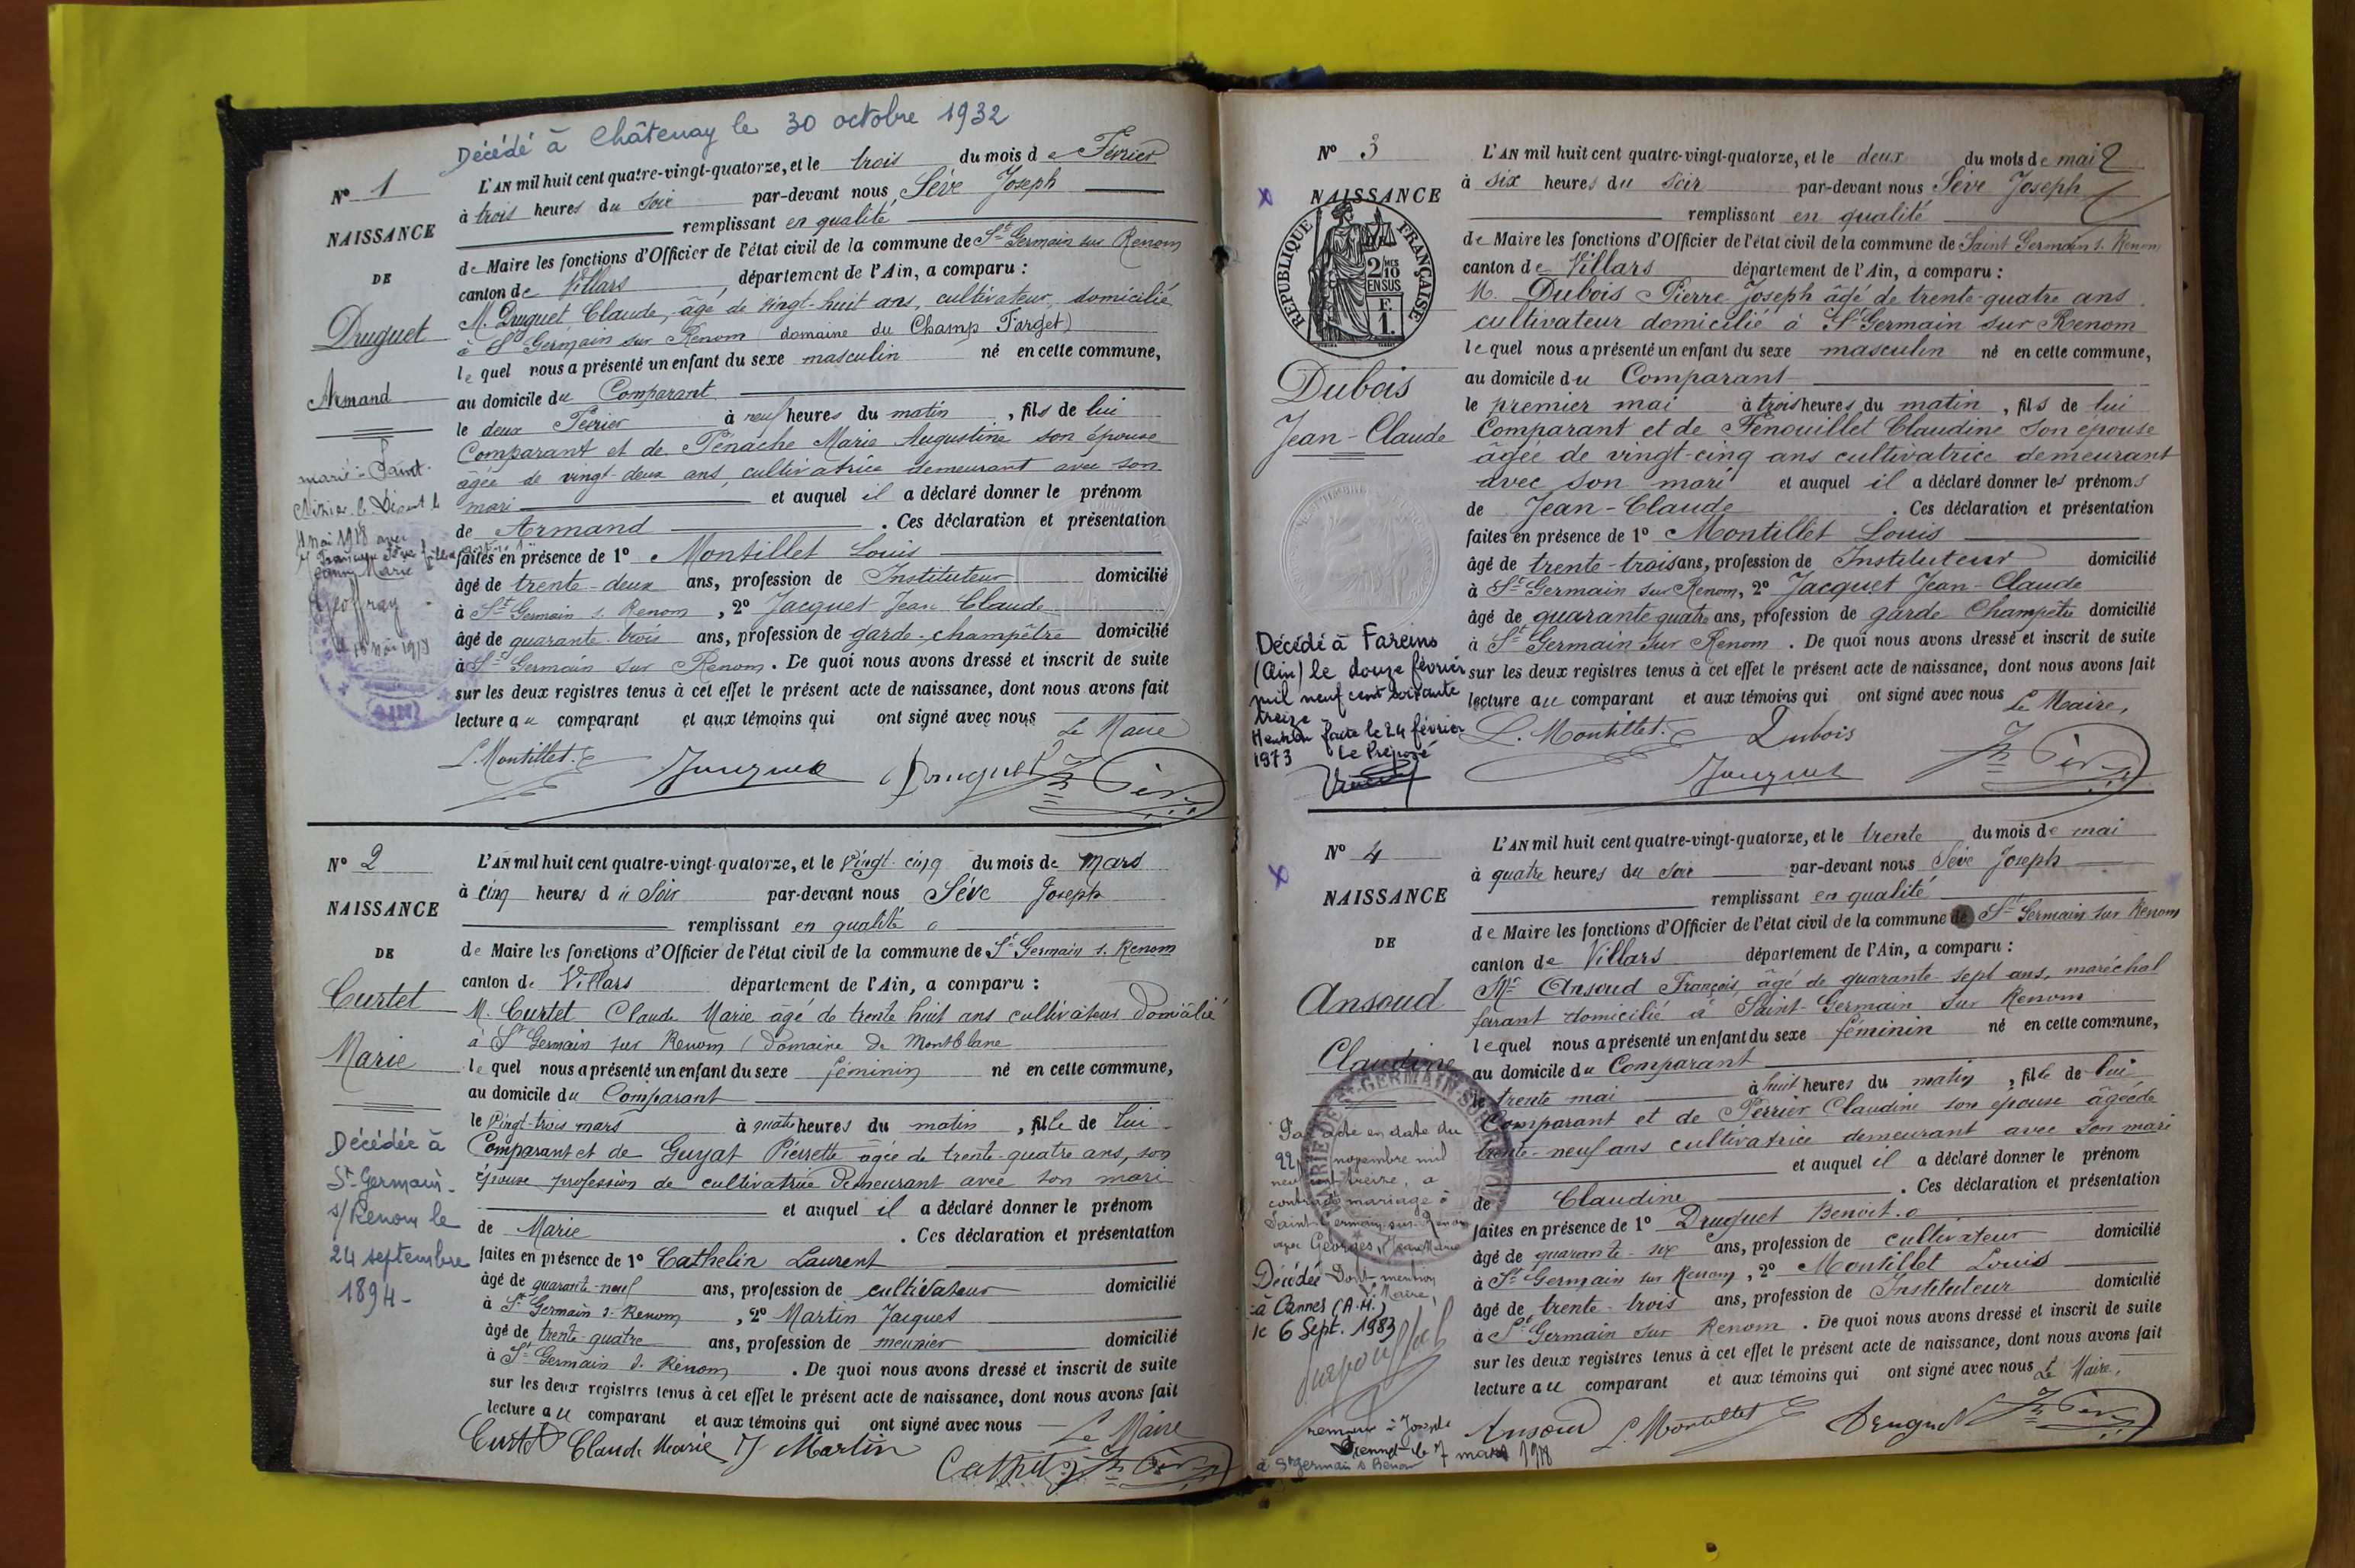 Décédé à Châtenay le 30 octobre 1932
N° 1
NAISSANCE
DE
Druguet
Armand
L'AN mil huit cent quatre-vingt-quatorze, et le trois du mois de Février
à trois heures du soir par-devant nous Sève Joseph
remplissant en qualité
de Maire les fonctions d'Officier de l'état civil de la commune de St Germain sur Renom
canton de Villars, département de l'Ain, a comparu :
M. Druguet Claude, âgé de vingt-huit ans, cultivateur, domicilié
à St Germain sur Renom (domaine du Champ Farget)
lequel nous a présenté un enfant du sexe masculin né en cette commune,
au domicile du Comparant
le deux Février à neuf heures du matin, fils de lui
Comparant et de Penache Marie Augustine son épouse
âgée de vingt-deux ans, cultivatrice demeurant avec son
mari et auquel il a déclaré donner le prénom
de Armand. Ces déclaration et présentation
faites en présence de 1° Montillet Louis
âgé de trente-deux ans, profession de Instituteur domicilié
à St Germain s. Renom, 2° Jacquet Jean Claude
âgé de quarante-trois ans, profession de garde-champêtre domicilié
à St Germain sur Renom. De quoi nous avons dressé et inscrit de suite
sur les deux registres tenus à cet effet le présent acte de naissance, dont nous avons fait
lecture au comparant et aux témoins qui ont signé avec nous
Le Maire
L. Montillet
Jacquet
Druguet
marié à Saint
Nizier le Désert le
mai 1918 avec
Marie
Geoffray
mai 1918
(AIN)
N° 2
NAISSANCE
DE
Curtet
Marie
L'AN mil huit cent quatre-vingt-quatorze, et le vingt-cinq du mois de Mars
à cinq heures du Soir par-devant nous Sève Joseph
remplissant en qualité
de Maire les fonctions d'Officier de l'état civil de la commune de St Germain s. Renom
canton de Villars département de l'Ain, a comparu :
M. Curtet Claude Marie âgé de trente huit ans cultivateur Domicilié
à St Germain sur Renom (Domaine de Montblanc
lequel nous a présenté un enfant du sexe féminin né en cette commune,
au domicile du Comparant
le Vingt-trois mars à quatre heures du matin, fille de lui
Comparant et de Guyat Pierrette âgée de trente-quatre ans, son
épouse profession de cultivatrice Demeurant avec son mari
et auquel il a déclaré donner le prénom
de Marie. Ces déclaration et présentation
faites en présence de 1° Cathelin Laurent
âgé de quarante-neuf ans, profession de cultivateur domicilié
à St Germain s. Renom, 2° Martin Jacques
âgé de trente-quatre ans, profession de meunier domicilié
à St Germain s. Renom. De quoi nous avons dressé et inscrit de suite
sur les deux registres tenus à cet effet le présent acte de naissance, dont nous avons fait
lecture au comparant et aux témoins qui ont signé avec nous
Le Maire
Curtet Claude Marie J Martin
Décédée à
St-Germain-
s/Renom le
24 septembre
1894-
N° 3
NAISSANCE
RÉPUBLIQUE FRANÇAISE
2/10 EN SUS
F. 1.
Dubois
Jean-Claude
L'AN mil huit cent quatre-vingt-quatorze, et le deux du mois de mai
à six heures du soir par-devant nous Sève Joseph
remplissant en qualité
de Maire les fonctions d'Officier de l'état civil de la commune de Saint Germain s. Renom
canton de Villars département de l'Ain, a comparu :
M. Dubois Pierre Joseph âgé de trente-quatre ans
cultivateur domicilié à St Germain sur Renom
lequel nous a présenté un enfant du sexe masculin né en cette commune,
au domicile du Comparant
le premier mai à trois heures du matin, fils de lui
Comparant et de Fenouillet Claudine son épouse
âgée de vingt-cinq ans cultivatrice demeurant
avec son mari et auquel il a déclaré donner les prénoms
de Jean-Claude. Ces déclaration et présentation
faites en présence de 1° Montillet Louis
âgé de trente-trois ans, profession de Instituteur domicilié
à St Germain sur Renom, 2° Jacquet Jean-Claude
âgé de quarante quatre ans, profession de garde Champêtre domicilié
à St Germain sur Renom. De quoi nous avons dressé et inscrit de suite
sur les deux registres tenus à cet effet le présent acte de naissance, dont nous avons fait
lecture au comparant et aux témoins qui ont signé avec nous Le Maire,
L. Montillet
Dubois
Jacquet
Décédé à Fareins
(Ain) le douze février
mil neuf cent soixante
treize
Mention faite le 24 février
1973 Le Préposé
N° 4
NAISSANCE
DE
Ansoud
Claudine
L'AN mil huit cent quatre-vingt-quatorze, et le trente du mois de mai
à quatre heures du soir par-devant nous Sève Joseph
remplissant en qualité
de Maire les fonctions d'Officier de l'état civil de la commune de St Germain sur Renom
canton de Villars département de l'Ain, a comparu :
Mr Ansoud François, âgé de quarante-sept ans, maréchal
ferrant domicilié à Saint-Germain sur Renom
lequel nous a présenté un enfant du sexe féminin né en cette commune,
au domicile du Comparant
le trente mai à huit heures du matin, fille de lui
Comparant et de Perrier Claudine son épouse âgée de
trente-neuf ans cultivatrice demeurant avec son mari
et auquel il a déclaré donner le prénom
de Claudine. Ces déclaration et présentation
faites en présence de 1° Druguet Benoit
âgé de quarante-six ans, profession de cultivateur domicilié
à St Germain sur Renom, 2° Montillet Louis
âgé de trente-trois ans, profession de Instituteur domicilié
à St Germain sur Renom. De quoi nous avons dressé et inscrit de suite
sur les deux registres tenus à cet effet le présent acte de naissance, dont nous avons fait
lecture au comparant et aux témoins qui ont signé avec nous Le Maire,
Ansoud
L. Montillet
Druguet
MAIRIE DE ST GERMAIN SUR RENOM
Par acte en date du
22 novembre mil
neuf cent treize, a
contracté mariage à
Saint-Germain-sur-Renom
avec Georges, Jean Marie
Dont mention
Le Maire,
Décédée
à Cannes (A.M.)
le 6 Sept. 1983
remariée à Joseph
le 7 mars 1918
à St Germain s Renom